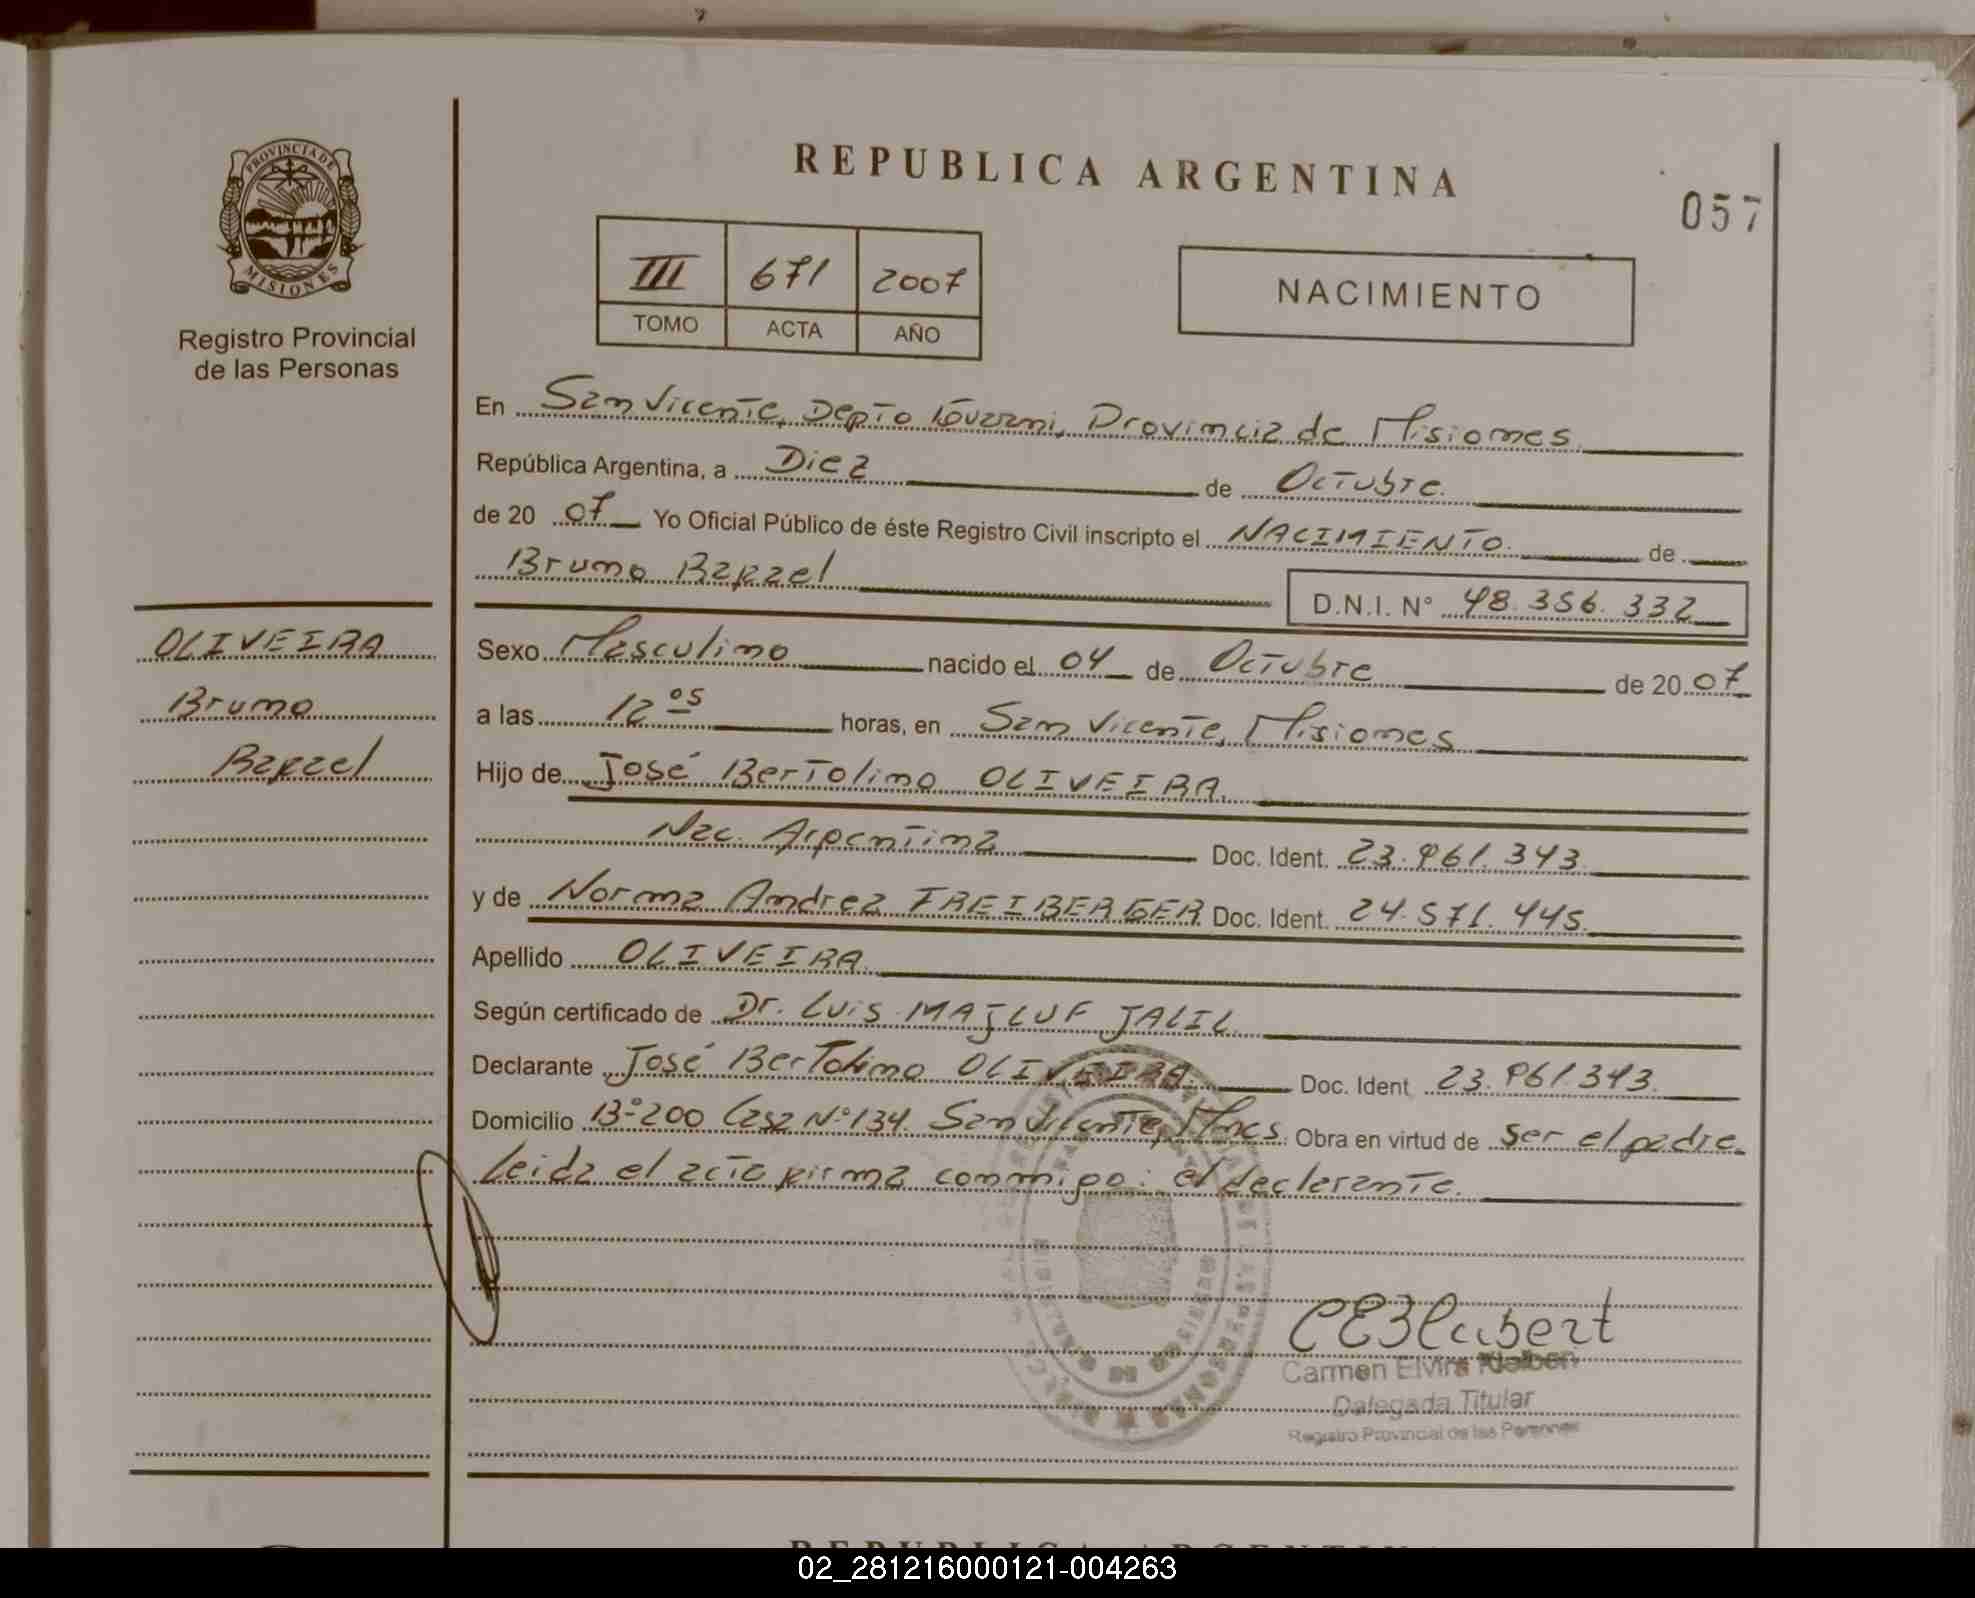 REPUBLICA ARGENTINA
057
PROVINCIA DE
MISIONES
Registro Provincial
de las Personas
III 671 2007
TOMO ACTA AÑO
NACIMIENTO
En San Vicente, Depto Guaraní, Provincia de Misiones.
República Argentina, a Diez de Octubre.
de 2007 Yo Oficial Público de éste Registro Civil inscripto el NACIMIENTO de
Bruno Rafael
D.N.I. N° 48.356.332
OLIVEIRA
Bruno
Rafael
Sexo Masculino nacido el 04 de Octubre de 2007
a las 12 05 horas, en San Vicente, Misiones
Hijo de José Bertolino OLIVEIRA.
Nac. Argentina Doc. Ident. 23.961.343.
y de Norma Andrea FREIBERGER Doc. Ident. 24.571.445.
Apellido OLIVEIRA.
Según certificado de Dr. Luis MAJLUF JALIL.
Declarante José Bertolino OLIVEIRA. Doc. Ident 23.961.343.
Domicilio B° 200 Casa N° 134. San Vicente, Mnes. Obra en virtud de ser el padre.
Leida el acta firma conmigo: el declarante.
Carmen Elvira
Delegada Titular
Registro Provincial de las Personas
REPUBLICA ARGENTINA
02_281216000121-004263